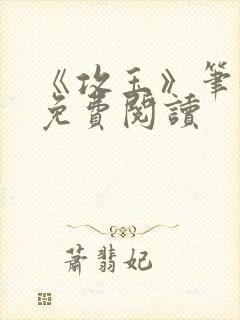 《攻玉》筆
免費閱讀
蕭翡妃